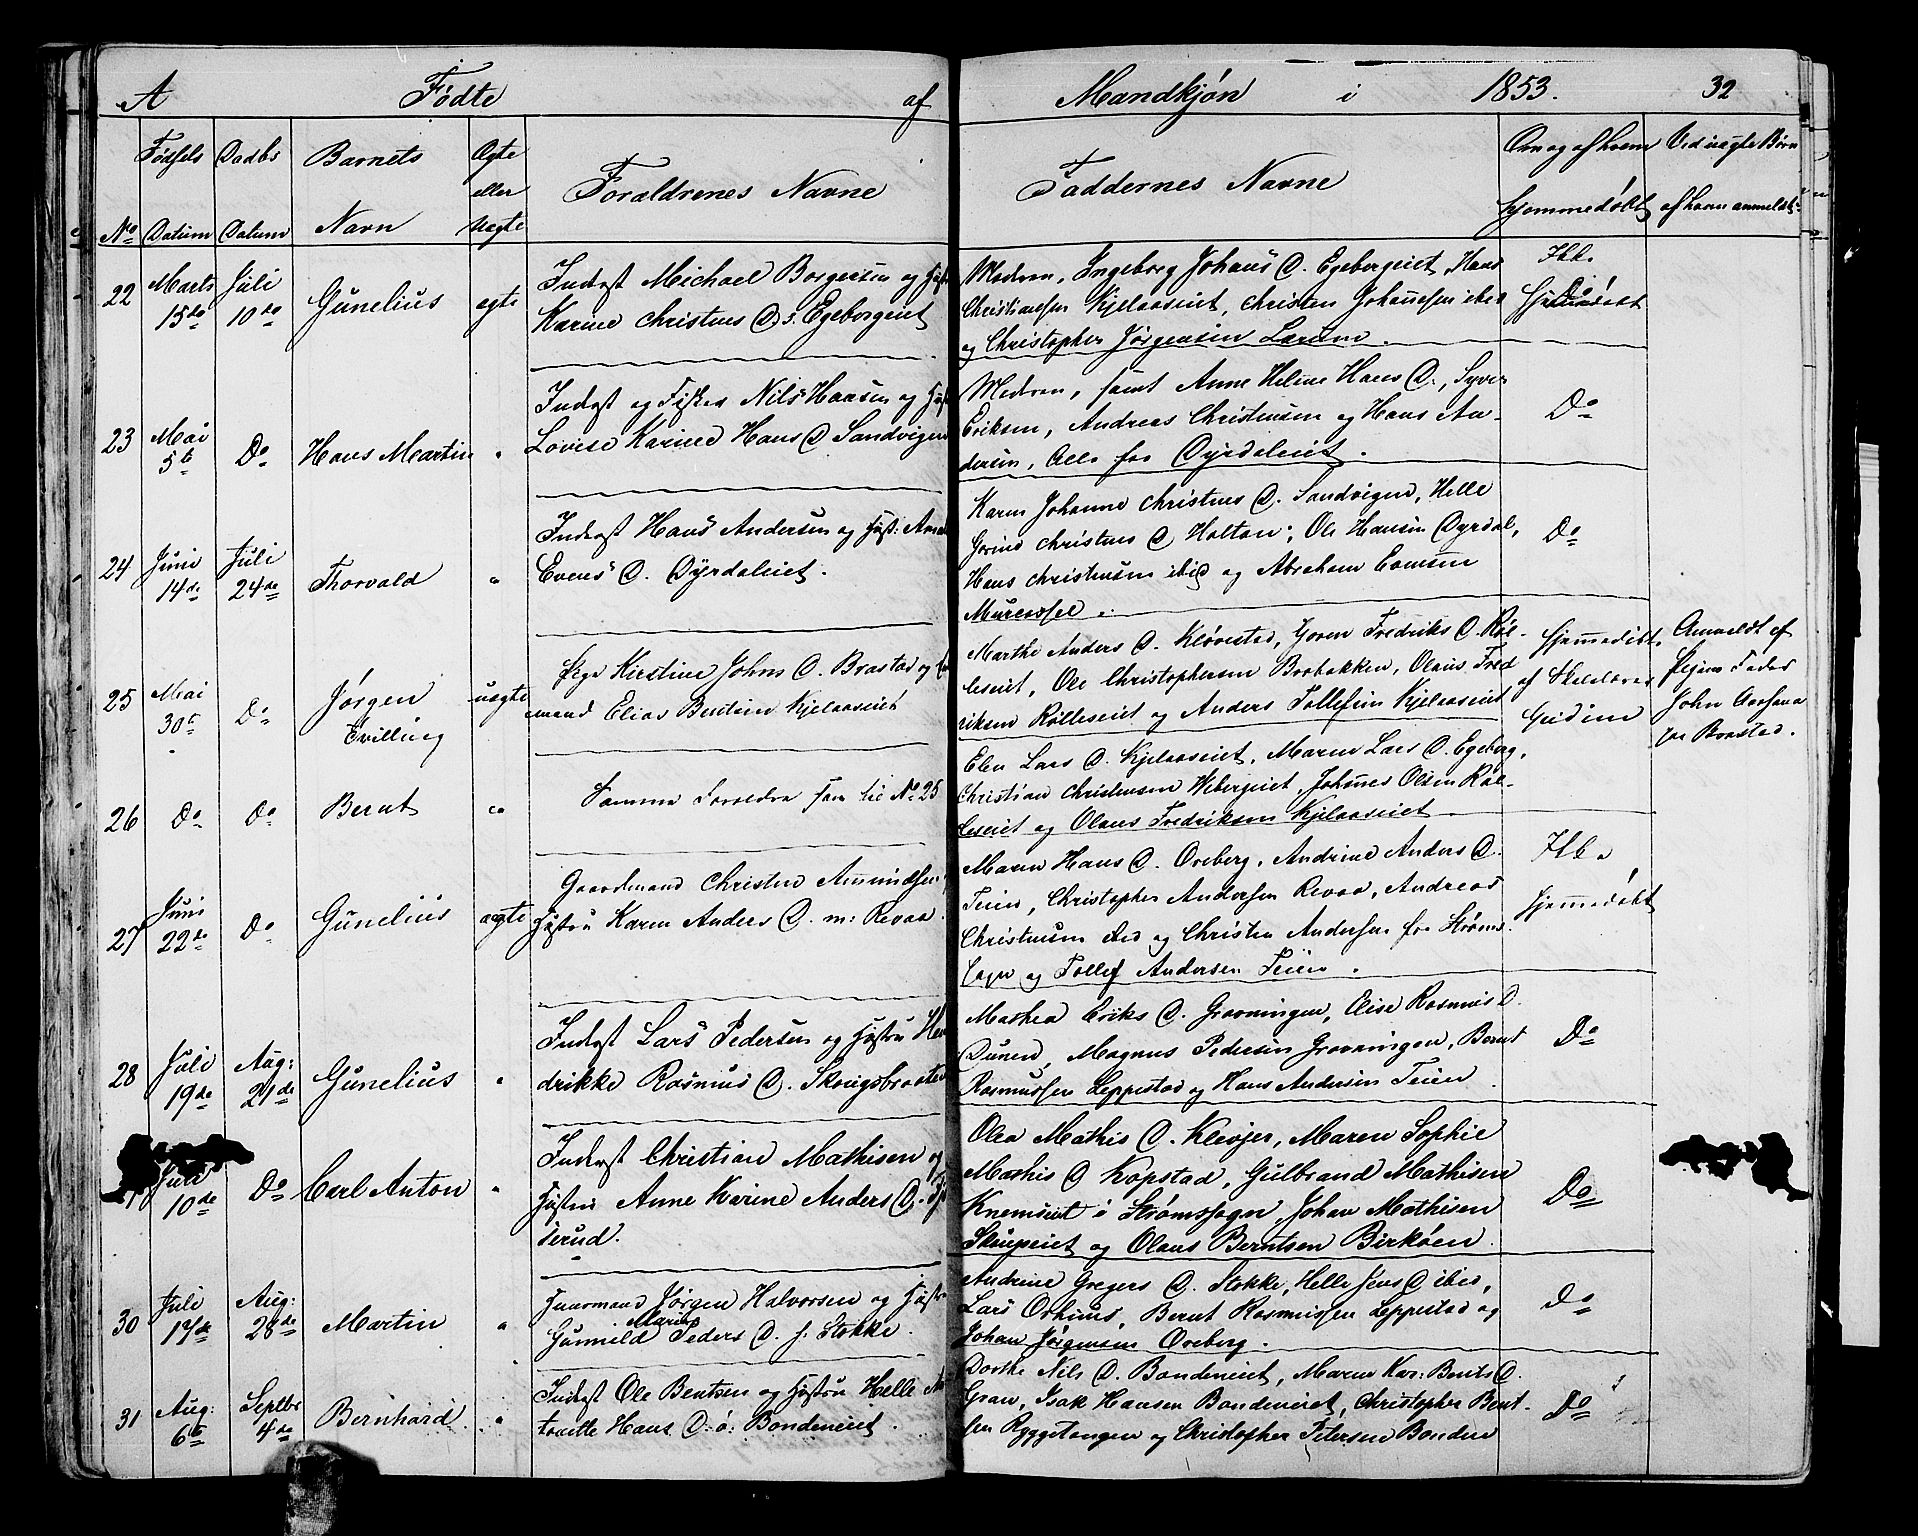 A Fødte af Mandkjøn i 1853. 32
No Fødsels Datum Daabs Datum Barnets Navn Ægte eller Uægte Forældrenes Navne Faddernes Navne Om og af hvem hjemmedøbt Ved uægte Børn af hvem anmeldt
22 Marts 15de Juli 10de Gunelius ægte
Inderst Michael Borgersen og
Karine Christens D. Egebergeiet
Medren, Ingeborg Johans D. Egebergeiet, Hans
Christiansen Kjelaaseiet, Christen Johannesen ibid
og Christopher Jørgensen Lærum.
Hb.
Do
Hjemmedøbt
23 Mai 5te Do Hans Martin "
Inderst og Fisker Nils Hansen og
Lovise Karine Hans D Sandvigen
Medren, samt Anne Helene Hans D., Syver
Eriksen, Andreas Christensen og Hans An-
dersen, Alle fra Dyrdaleiet.
Do
24 Juni 14de Juli 24de Thorvald "
Inderst Hans Andersen og Hust: Anne
Evens D. Dyrdaleiet.
Karen Johanne Christens D. Sandvigen, Helle
Gorine Christens D Holtan; Ole Hansen Dyrdal,
Hans Christensen ibid og Abraham
Do
25 Mai 30te Do Jørgen Tvilling uægte
Pige Kirstine Johns D. Brastad og
mand Elias Bentsen Kjelaaseiet
Marthe Anders D. Kløvestad, Goren Fredriks D. Røl-
leseiet, Ole Christophersen Brobakken, Olaus Fred
riksen Rølleseiet og Anders Tollefsen Kjelaaseiet
Hjemmedøbt
af Skolelærer
Anmeldt af
Pigens Fader
John
Brastad.
26 Do Do Bernt "
Samme Forældre som til No 25
Elen Lars D. Kjelaaseiet, Maren Lars D. Egeberg,
Christian Christensen Wibergeiet, Johannes Olsen Røl-
leseiet og Olaus Fredriksen Kjelaaseiet
27 Juni 22de Do Gunelius ægte
Gaardmand Christen Amundsen
Hustru Karen Anders D. m: Revaa.
Maren Hans D. Oreberg, Andrine Anders D.
Teien, Christopher Andersen Revaa, Andreas
Christensen ibid og Christen Andersen fra Strøms-
sogn og Tollef Andersen Teien.
Hb.
Hjemmedøbt
28 Juli 19de Aug: 21de Gunelius "
Inderst Lars Pedersen og Hustru Hen
drikke Rasmus D. Skougsbraaten
Mathea Eriks D. Gravningen, Elise Rasmus D.
Dunen, Magnus Pedersen Gravningen, Bernt
Rasmussen Leppestad og Hans Andersen Teien.
Do
Juli 10de Do Carl Anton "
Inderst Christian Mathisen og
Hustru Anne Karine Anders D.
serud.
Olea Mathis D. Klevjer, Maren Sophie
Mathis D Kopstad, Gulbrand Mathisen
Knemseiet i Strømssogn, Johan Mathisen
Skuepeiet og Olaus Berntsen Birkøen.
Do
30 Juli 17de Aug: 28de Martin "
Huusmand Jørgen Halvorsen og Hustru
Gunnild Marie Peders D. f. Stokke.
Andrine Gregers D. Stokke, Helle Jens D ibid,
Lars Orhuus, Bernt Rasmussen Leppestad og
Johan Jørgensen Oreberg.
Do
31 Aug: 6te Septbr 4de Bernhard "
Inderst Ole Bentsen og Hustru Helle An
tonette Hans D. ø: Bondeneiet.
Dorthe Nils D. Bondeneiet, Maren Kar: Bents D.
Gran, Isak Hansen Bondeneiet, Christopher Bent-
sen Ryggetangen og Christopher Petersen Bonden
Do